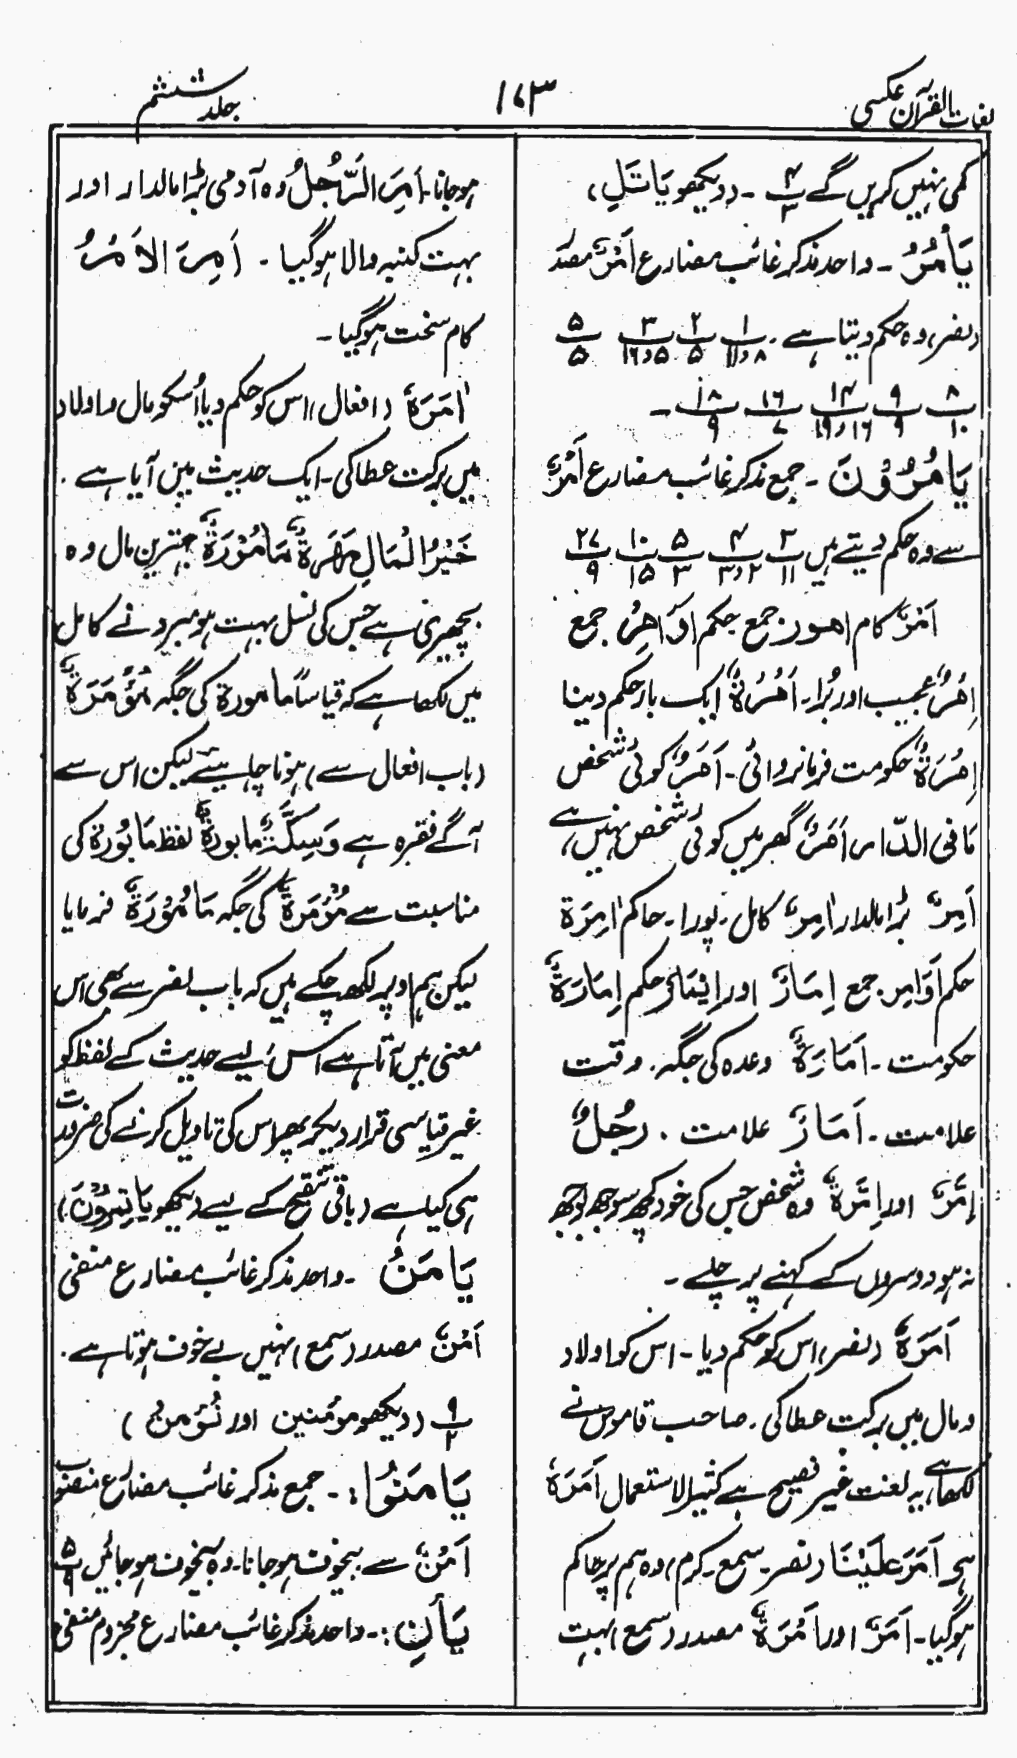 لغات القرآن عکسی
۱۷۳
جلد ششم
کمی نہیں کریں گے ۴/۳ ۔ (دیکھو یَاتَلِ)
یَأْمُرُ ۔ واحد مذکر غائب مضارع اَمْرٌ مصدر
(نصر) وہ حکم دیتا ہے ۔ ۱/۸ و ۱۱ ۲/۵ ۳/۵ و ۱۶ ۵/۵
۸/۱۰ ۹/۹ ۱۴/۱۶ و ۱۹ ۱۶/۷ ۱۸/۹ ۔
یَامُرُوْنَ ۔ جمع مذکر غائب مضارع اَمْرٌ
سے وہ حکم دیتے ہیں ۳/۱۱ ۴/۲ و ۳ ۵/۳ ۱۰/۱۵ ۲۷/۹
اَمْرٌ کام امور جمع حکم اَوَامِرُ جمع
اِمْرٌ عجیب اور بُرا ۔ اَمْرَۃٌ ایک بار حکم دینا
اِمْرَۃٌ حکومت فرمانروائی ۔ اَمَرٌ کوئی شخص
مَا فِی الدَّارِ اَمَرٌ گھر میں کوئی شخص نہیں ہے
اَمِرٌ بڑا مالدار اٰمِرٌ کامل ۔ پورا ۔ حاکم اٰمِرَۃ
حکم اَوَامِر جمع اِمَارٌ اور اِیْتِمَارٌ حکم اِمَارَۃٌ
حکومت ۔ اَمَارَۃٌ وعدہ کی جگہ ۔ وقت
علامت ۔ اَمَارٌ علامت ۔ رَجُلٌ
اِمَّرٌ اور اِمَّرَۃٌ وہ شخص جس کی خود کچھ سوجھ بوجھ
نہ ہو دوسروں کے کہنے پر چلے ۔
اَمَرَہٗ (نصر) اس کو حکم دیا ۔ اس کو اولاد
و مال میں برکت عطا کی ۔ صاحب قاموس نے
لکھا ہے یہ لغت غیر فصیح ہے کثیر الاستعمال اٰمَرَہٗ
ہی اَمَرَ عَلَیْنَا (نصر ۔ سمع ۔ کرم) وہ ہم پر حاکم
ہو گیا ۔ اَمَرٌ اور اَمَرَۃٌ مصدر (سمع) بہت
ہو جانا ۔ اَمِرَ الرَّجُلُ وہ آدمی بڑا مالدار اور
بہت کنبہ والا ہو گیا ۔ اَمِرَ الاَمْرُ
کام سخت ہو گیا ۔
اٰمَرَہٗ (افعال) اس کو حکم دیا اُسکو مال و اولاد
میں برکت عطا کی ۔ ایک حدیث میں آیا ہے ۔
خَیْرُ الْمَالِ مُھْرَۃٌ مَامُوْرَۃٌ بہترین مال وہ
بچھیری ہے جس کی نسل بہت ہو مبرد نے کامل
میں لکھا ہے کہ قیاساً مامورۃ کی جگہ مُؤْمَرَۃٌ
(باب افعال سے) ہونا چاہیے لیکن اس سے
آگے فقرہ ہے وَسِکَّۃٌ مابورۃٌ لفظ مَابُوْرَۃٌ کی
مناسبت سے مُؤْمَرَۃٌ کی جگہ مَامُوْرَۃٌ فرمایا
لیکن ہم اوپر لکھ چکے ہیں کہ باب نصر سے بھی اس
معنی میں آتا ہے اس لیے حدیث کے لفظ کو
غیر قیاسی قرار دیکر پھر اس کی تاویل کرنے کی ضرورت
ہی کیا ہے (باقی تنقیح کے لیے دیکھو یَاتَمِرُوْنَ)
یَامَنُ ۔ واحد مذکر غائب مضارع منفی
اَمْنٌ مصدر (سمع) نہیں بے خوف ہوتا ہے ۔
۹/۲ (دیکھو مؤمنین اور نُؤمِنُ)
یَامَنُوْا: ۔ جمع مذکر غائب مضارع منصوب
اَمْنٌ سے بیخوف ہو جانا ۔ وہ بیخوف ہو جائیں ۵/۹
یَأْنِ: ۔ واحد مذکر غائب مضارع مجزوم منفی